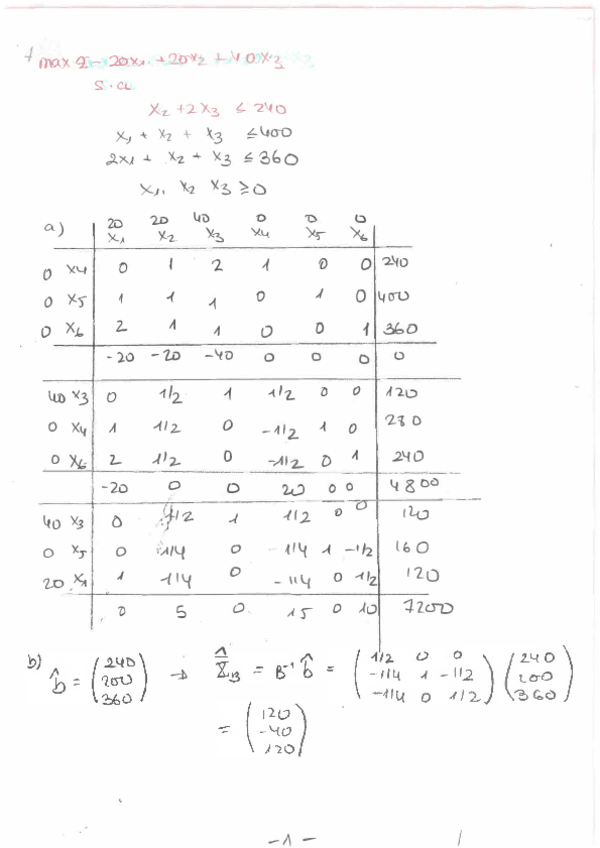 max Z = 20x₁ + 20x₂ + 40x₃
s.a
x₂ + 2x₃ ≤ 240
x₁ + x₂ + x₃ ≤ 400
2x₁ + x₂ + x₃ ≤ 360
x₁, x₂ x₃ ≥ 0
a) 20 20 40 0 0 0
x₁ x₂ x₃ x₄ x₅ x₆
0 x₄ 0 1 2 1 0 0 240
0 x₅ 1 1 1 0 1 0 400
0 x₆ 2 1 1 0 0 1 360
-20 -20 -40 0 0 0 0
40 x₃ 0 1/2 1 1/2 0 0 120
0 x₄ 1 1/2 0 -1/2 1 0 280
0 x₆ 2 1/2 0 -1/2 0 1 240
-20 0 0 20 0 0 4800
40 x₃ 0 1/2 1 1/2 0 0 120
0 x₅ 0 1/4 0 -1/4 1 -1/2 160
20 x₁ 1 1/4 0 -1/4 0 1/2 120
0 5 0 15 0 10 7200
b) b̂ = (240 200 360) → x̂_B = B⁻¹ b̂ = (1/2 0 0 -1/4 1 -1/2 -1/4 0 1/2) (240 200 360)
= (120 -40 120)
-1-